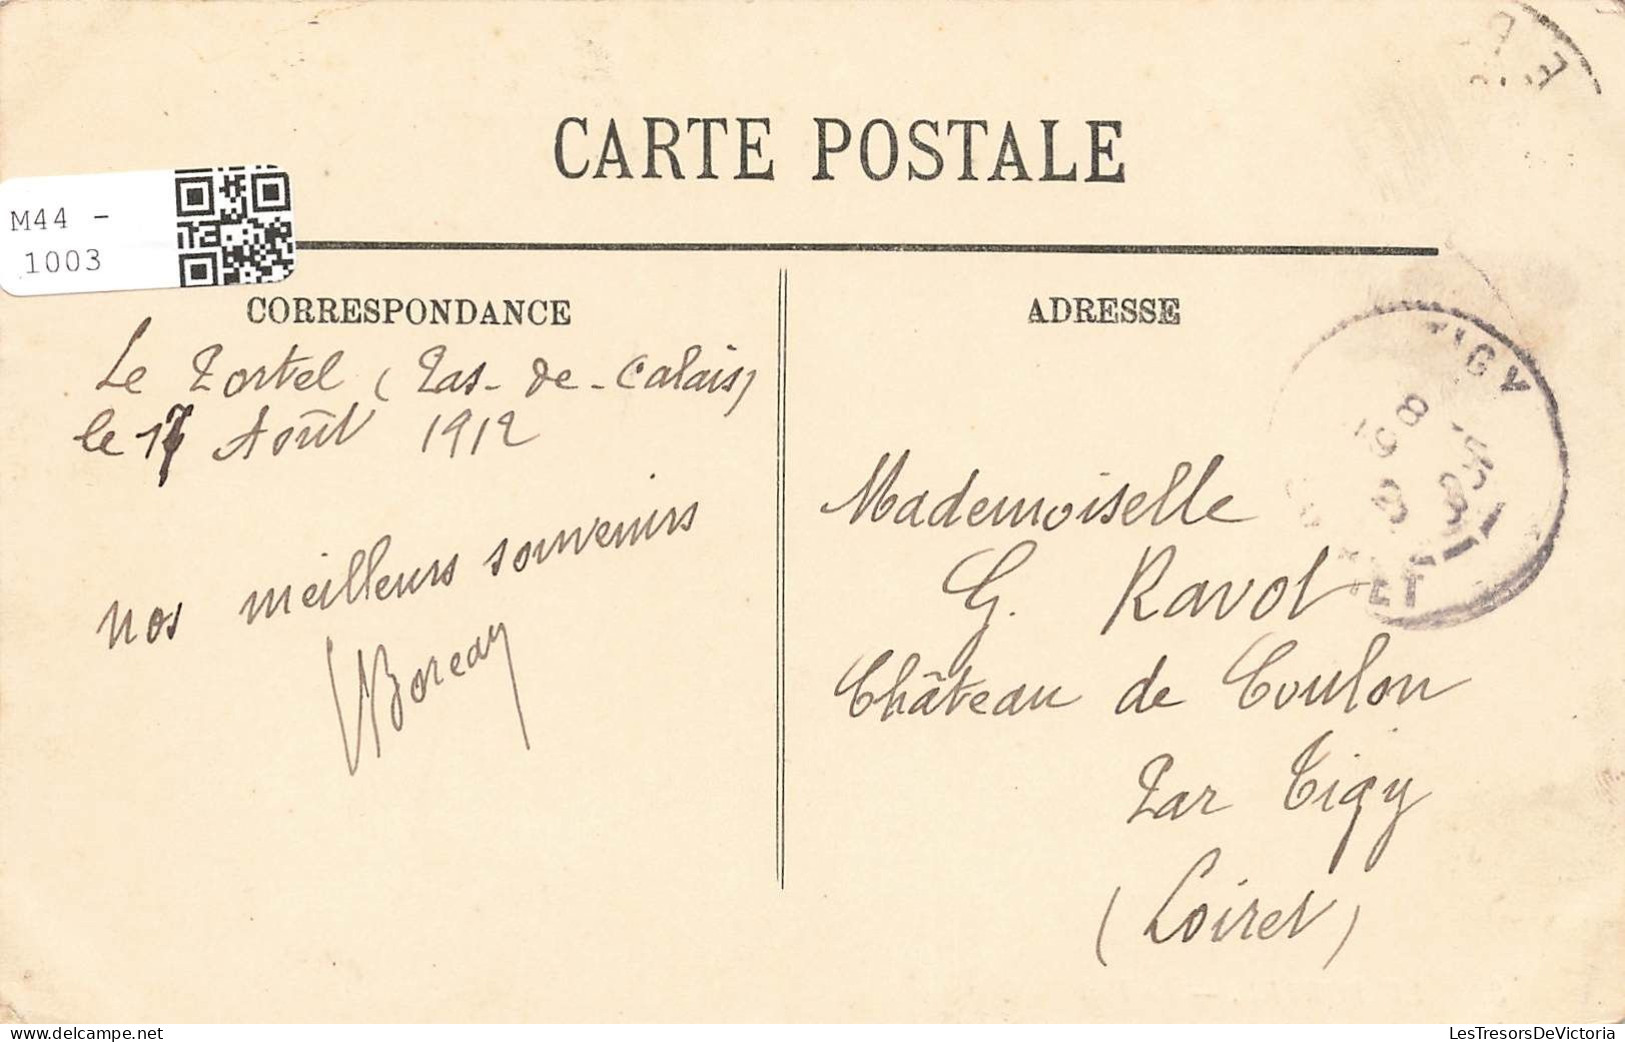 CARTE POSTALE
M44 -
1003
CORRESPONDANCE
Le Portel (Pas-de-Calais)
le 17 Août 1912
nos meilleurs souvenirs
ADRESSE
Mademoiselle
G. Ravot
Château de Coulon
Par Tigy
(Loiret)
TIGY
LesTresorsDeVictoria
www.delcampe.net